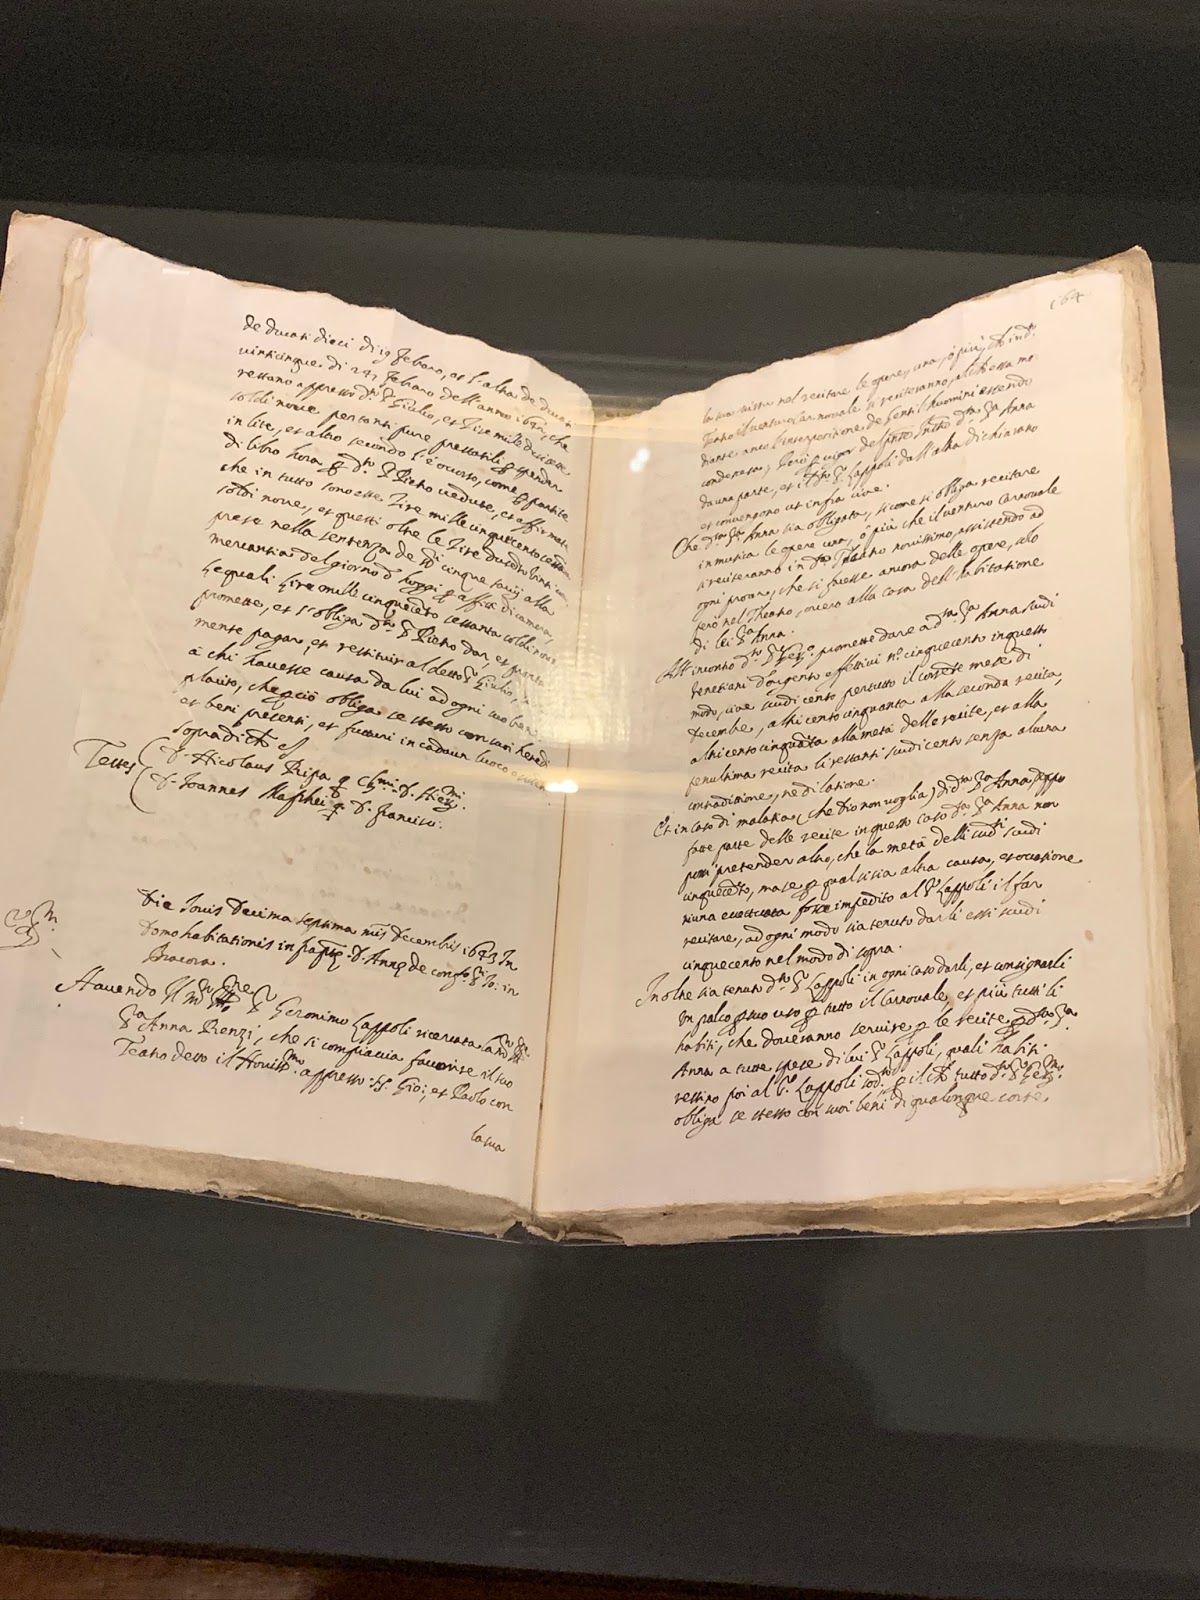 de ducati dieci di 19 febraro, et l'altra de ducati
vinticinque di 24 febraro dell'anno 1641, che
restano appresso d.to S.r Giulio, et lire mille diecisette
soldi nove pertanti pure prestatili p spender
in lite, et altro secondo l'è occorso, come p partite
di libro hora p d.to S.r Pietro vedute, et affirmate
che in tutto sono esse lire mille cinquecento sessanta
soldi nove, et questi oltre le lire
prese nella sentenza de di cinque alla
mercantia del giorno d' hoggi p affitti di camera,
Le quali lire mille cinquecento sessanta soldi nove
promette, et s'obliga d.to S.r Pietro dar, et pronta
mente pagar, et restituir al detto S.r Giulio, ò
à chi havesse causa da lui ad ogni suo bene
placito, che p ciò obliga se stesso con suoi heredi
et beni presenti, et futuri in cadaun luoco
sopradicti
Testes D. Nicolaus Ripa q Cl.mi D. Hier.mi
D. Joannes Maffhei q D. Francisci.
Die Jovis Decima septima mis Decembris 1643 In
Domo habitationis infrascr. D. Annę de conf.o S.ti Jo: in
Bragora.
Havendo Il Geronimo Lappoli ricercata
S.ra Anna Renzi, che si compiaccia favorire il suo
Teatro detto il Noviss.mo appresso SS. Gio: et Paolo con
la sua
164
la sua virtù nel recitare le opere, una, ò più,
Teatro il venturo Carnovale si reciteranno,
diante anco l'interpositione de Gentil'huomini essendo
condesesa; Però p vigor del pnte Instro d.ta S.ra Anna
da una parte, et il d.to S.r Lappoli dall'altra dichiarano
et convengono ut infra cive.
Che d.ta S.ra Anna sia obligata, si come si obliga recitare
in musica le opere una, ò più che il venturo Carnovale
si reciteranno in d.to Theatro novissimo, assistendo ad
ogni prova, che si facesse ancora delle opere, solo
però nel Theatro, overo alla casa dell'habitatione
di lei S.ra Anna.
All'incontro d.to S.r Ger.mo promette dare a d.ta S.ra Anna scudi
Venetiani d'argento effettivi n.o cinquecento in questo
modo, cive scudi cento per tutto il corrente mese di
Decembre, altri cento cinquanta alla seconda recita,
altri cento cinquanta alla metà delle recite, et alla
penultima recita li restanti scudi cento senza alcuna
contradittione, ne dilatione.
Et in caso di malatia (che Dio non voglia) di d.ta S.ra Anna, doppo
fatte parte delle recite in questo caso d.ta S.ra Anna non
possi pretender altro, che la metà delli sud.ti scudi
cinquecento, ma se p qual si sia altra causa, et occasione
niuna eccettuata fosse impedito al S.r Lappoli il far
recitare, ad ogni modo sia tenuto darli essi scudi
cinquecento nel modo di sopra.
In oltre sia tenuto d.to S.r Lappoli in ogni caso darli, et consignarli
un palco p suo uso p tutto il Carnovale, et più tutti li
habiti, che doveranno servire p le recite p d.ta S.ra
Anna a tutte spese di lui S.r Lappoli, quali habiti
restino poi al S.r Lappoli sod.to p il che tutto d.to S.r Ger.mo
obliga se stesso con suoi beni di qualunque sorte,